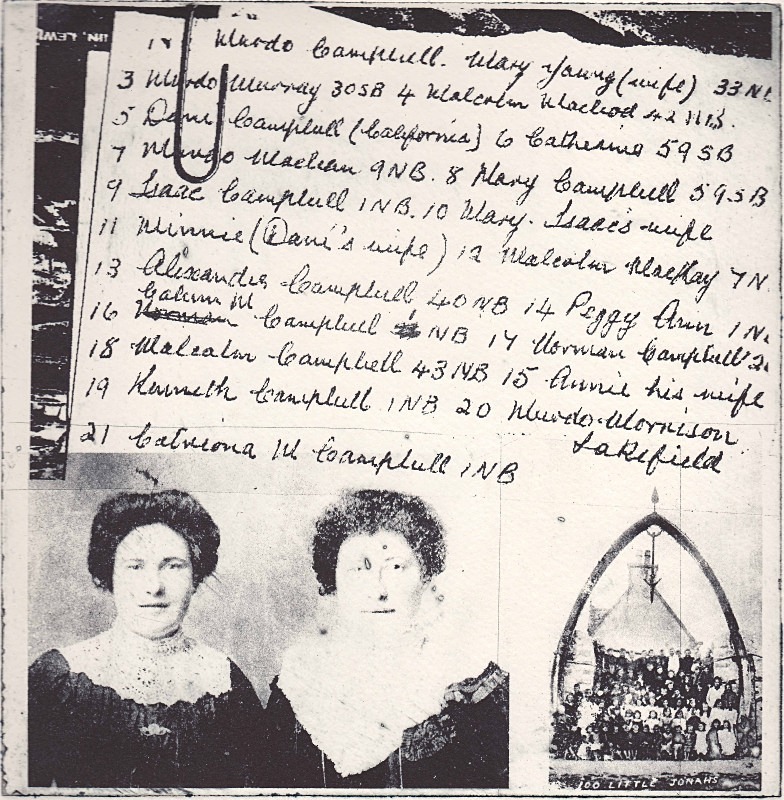 Murdo Campbell. Mary Young (wife) 33 N
3 Murdo Murray 30 SB 4 Malcolm Macleod 42 NB.
5 Dani Campbell (California) 6 Catherine 59 SB
7 Murdo Maclean 9 NB. 8 Mary Campbell 59 SB
9 Isaac Campbell 1 NB. 10 Mary. Isaac's wife
11 Minnie (Dani's wife) 12 Malcolm MacKay 7 N
13 Alexandra Campbell 40 NB 14 Peggy Ann 1 N
Calum M
16 Norman Campbell NB 17 Norman Campbell
18 Malcolm Campbell 43 NB 15 Annie his wife
19 Kenneth Campbell 1 NB 20 Murdo Morrison
Lakefield
21 Catriona M Campbell 1 NB
100 LITTLE JONAHS